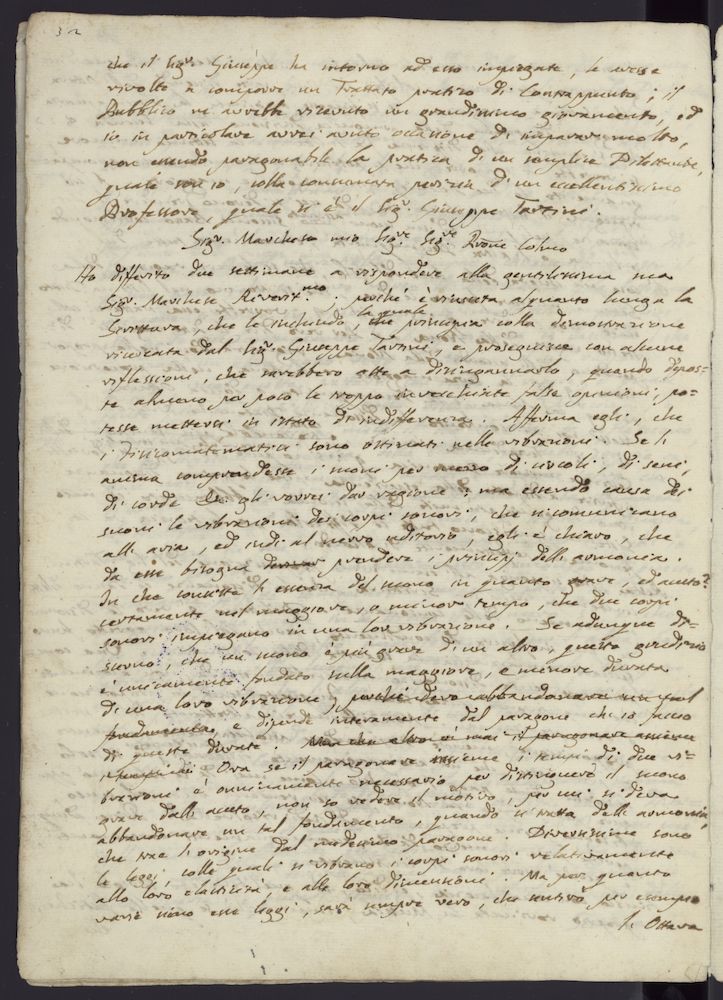 32
che il Sig.r Giuseppe ha intorno ad esso impiegate, le avesse
rivolto a comporre un Trattato pratico di Contrappunto; il
Pubblico ne avrebbe ricevuto un grandissimo giovamento, ed
io in particolare avrei avuto occasione di imparare molto,
non essendo paragonabile la pratica di un semplice Dilettante,
quale son io, colla consumata perizia di un eccellentissimo
Professore, quale si è il Sig.r Giuseppe Tartini.
Sig.r Marchese mio Sig.re Sig.re Prone Colmo
Ho differito due settimane a rispondere alla gentilissima sua
Sig.r Marchese Riverit.mo; perché è riuscita alquanto lunga la
Scrittura, che le inchiudo, che la quale principia colla dimostrazione
ricercata dal Sig.r Giuseppe Tartini, e proseguisce con alcune
riflessioni, che sarebbero atte a disingannarlo, quando depos=
te almeno per poco le troppo invecchiate false opinioni, po=
tesse mettersi in istato di indifferenza. Afferma egli, che
i Fisicomatematici sono ostinati nelle vibrazioni. Se l'
anima comprendesse i suoni per mezzo di circoli, di seni,
di corde gli vorrei dar ragione: ma essendo causa dei
suoni le vibrazioni dei corpi sonori, che si comunicano
all'aria, ed indi al nervo uditorio, egli è chiaro, che
da esse bisogna prendere i principj dell'armonia.
In che consiste l'essenza del suono in quanto grave, ed acuto?
certamente nel maggiore, o minore tempo, che due corpi
sonori impiegano in una lor vibrazione. Se adunque di=
scerno, che un suono è più grave di un altro, questo giudizio
è unicamente fondato sulla maggiore, e minore durata
di una loro vibrazione, perché devo abbandonare un tal
fondamento, e dipende interamente dal paragone che io faccio
di queste durate. il paragonare assieme
Ora se il paragonare assieme i tempi di due vi=
brazioni è onninamente necessario per distinguere il suono
grave dall'acuto, non so vedere il motivo, per cui si deva
abbandonare un tal fondamento, quando si tratta dell'armonia,
che trae l'origine dal medesimo paragone. Diversissime sono
le leggi, colle quali si vibrano i corpi sonori relativamente
alla loro elasticità, e alle loro dimensioni. Ma per quanto
varie sieno esse leggi, sarà sempre vero, che sentirò, per esempio
l'Ottava